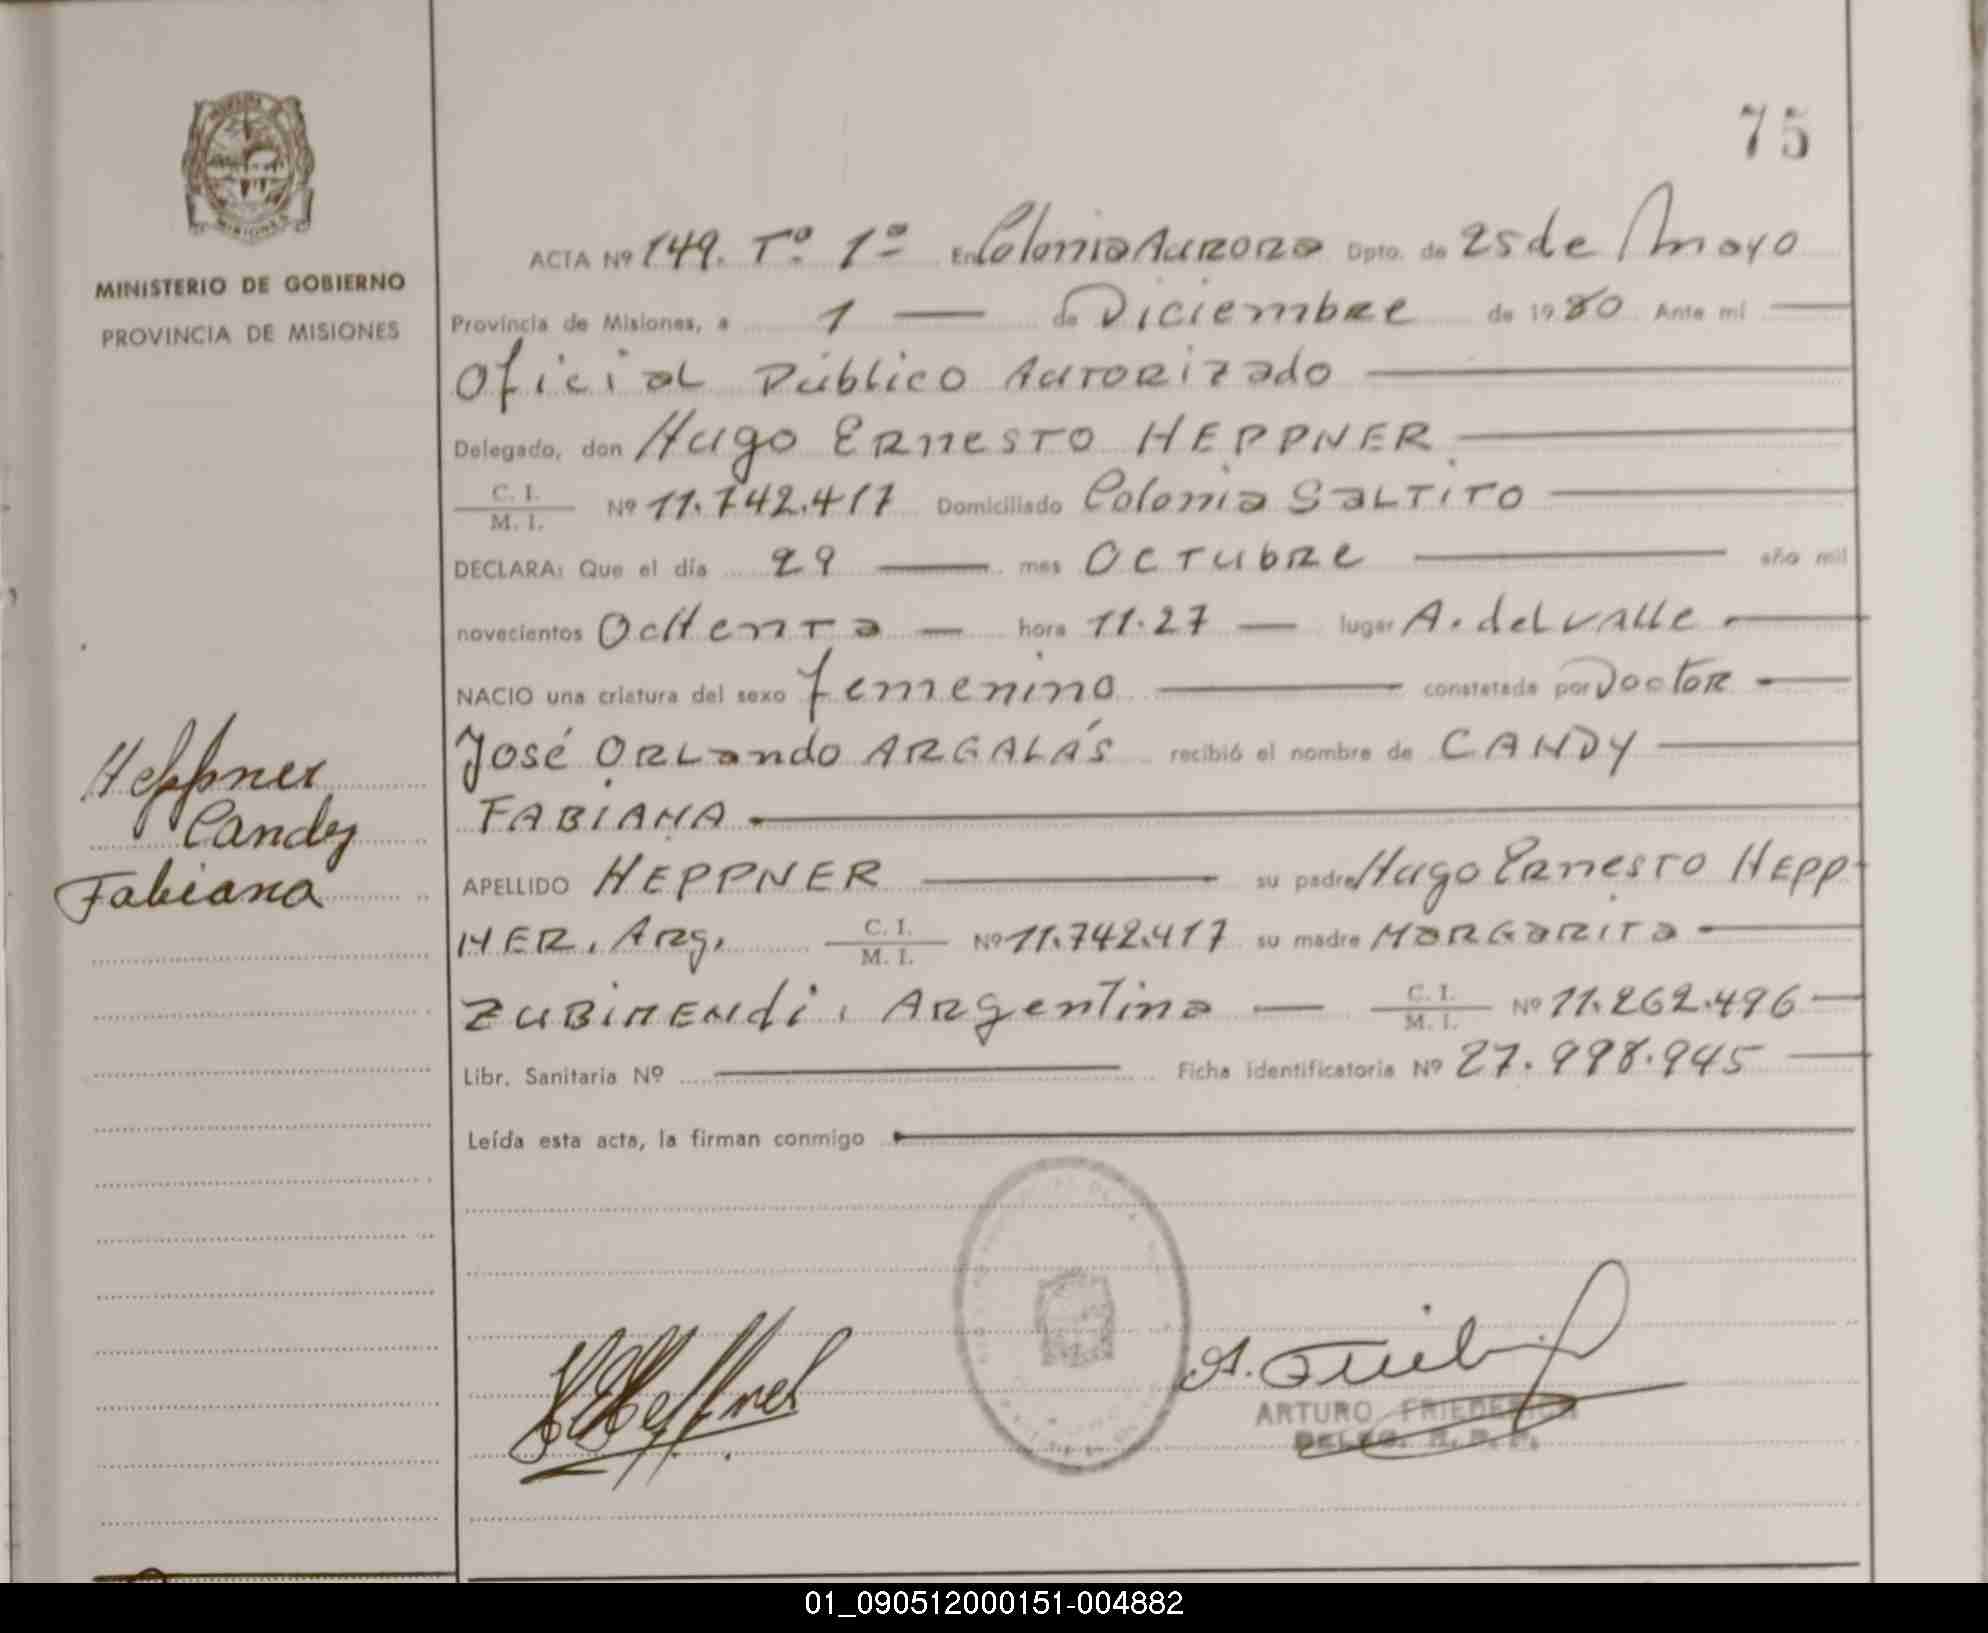 75
MISIONES
MINISTERIO DE GOBIERNO
PROVINCIA DE MISIONES
Heppner
Candy
Fabiana
ACTA Nº 149. Tº. 1º En Colonia Aurora Dpto. de 25 de Mayo
Provincia de Misiones, a 1 — de Diciembre de 1980 Ante mi —
Oficial Público Autorizado —
Delegado, don Hugo Ernesto HEPPNER —
C. I.
M. I.
Nº 11.742.417 Domiciliado Colonia Saltito —
DECLARA: Que el día 29 — mes Octubre — año mil
novecientos Ochenta — hora 11.27 — lugar A. del valle —
NACIO una criatura del sexo femenino — constatada por Doctor —
José Orlando ARGALÁS recibió el nombre de CANDY —
FABIANA —
APELLIDO HEPPNER — su padre Hugo Ernesto HEPP
NER, Arg. C. I.
M. I.
Nº 11.742.417 su madre Margarita —
ZUBIMENdi, Argentina — C. I.
M. I.
Nº 11.262.496 —
Libr. Sanitaria Nº — Ficha identificatoria Nº 27.998.945 —
Leída esta acta, la firman conmigo —
Heppner
ARTURO FRIEDERICH
DELEG. R. P. P.
01_090512000151-004882